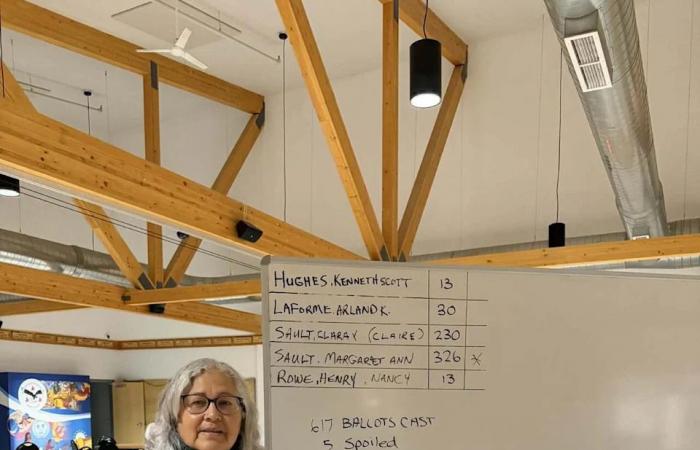 HUGHES, KENNETH SCOTT 13
LAFORME, ARLAND K. 30
SAULT, CLARAY (CLAIRE) 230
SAULT, MARGARET ANN 326 *
ROWE, HENRY, NANCY 13
617 BALLOTS CAST
5 Spoiled